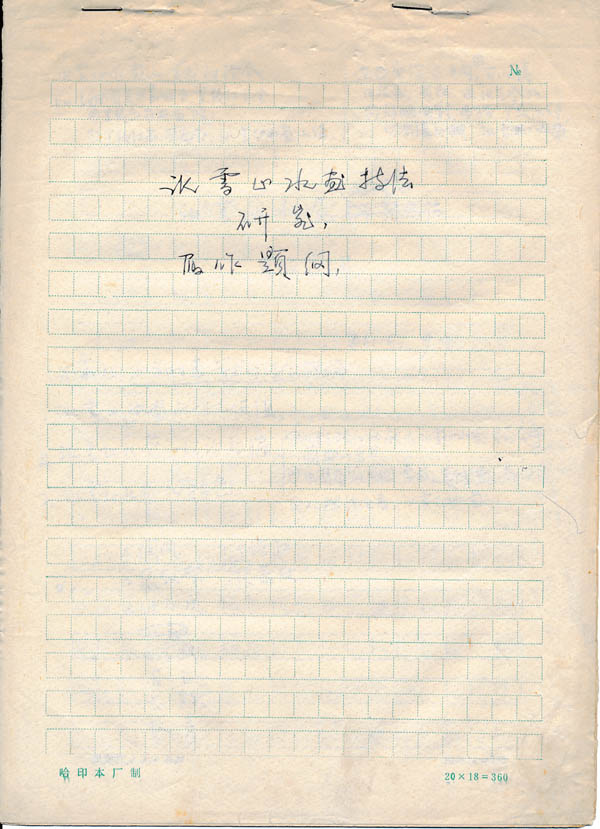 №
冰雪山水画技法
研究,
作题纲,
哈印本厂制
20×18=360